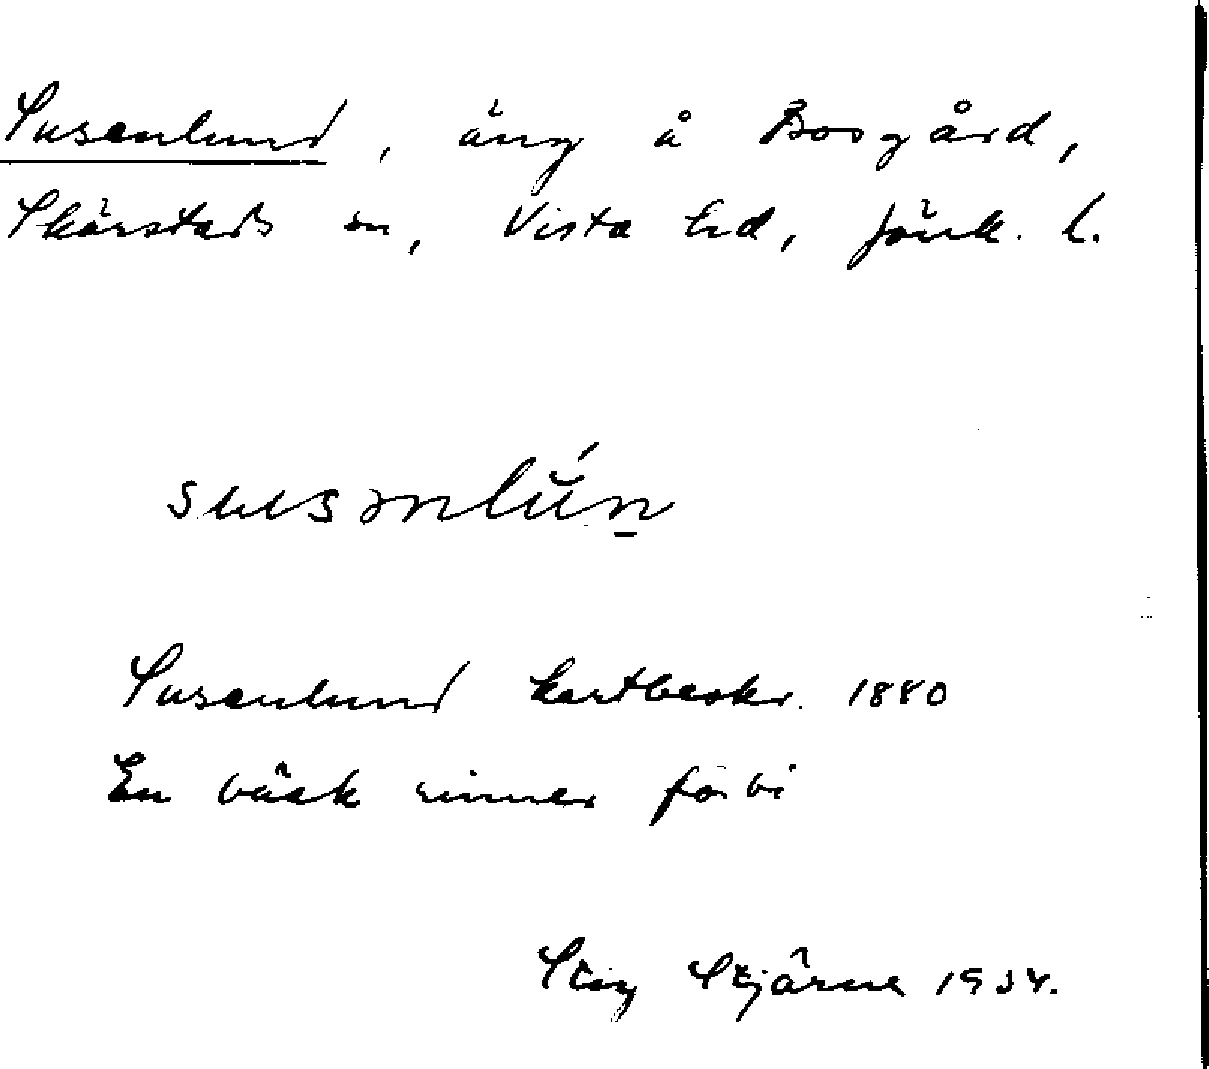 Susenlund, äng å Bosgård,
Skärstads sn, Vista hd, Jönk. l.
susənlún
Susenlund kartbeskr. 1880
En bäck rinner förbi
Stig Stjärne 1934.